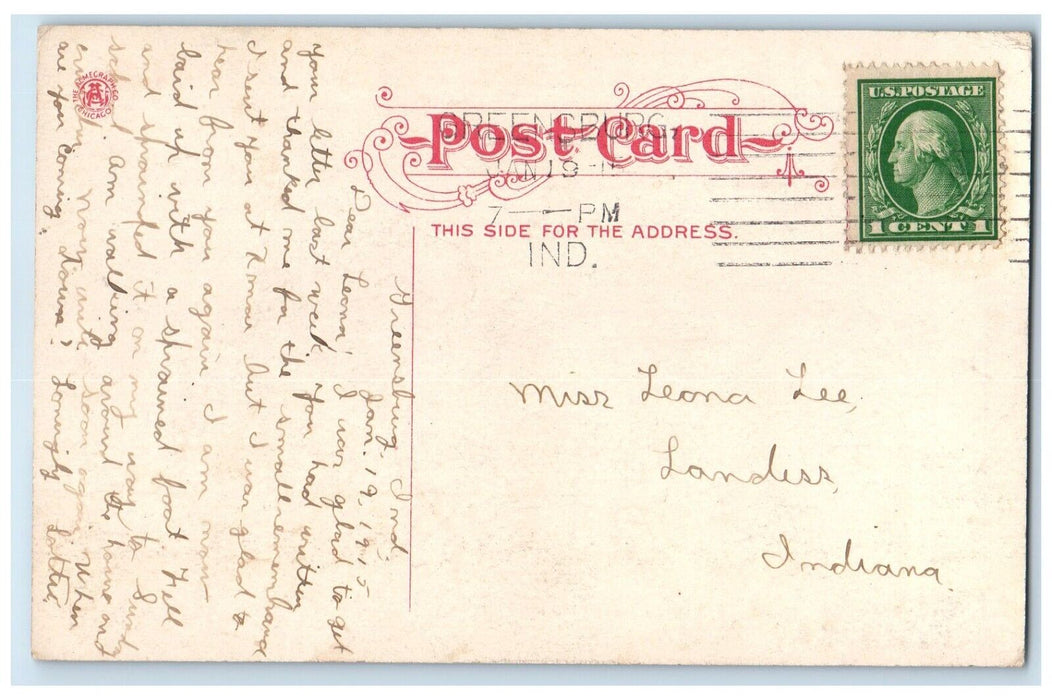 Post Card
THIS SIDE FOR THE ADDRESS.
U.S. POSTAGE
1 CENT 1
GREENSBURG,
JAN 19
7 — PM
IND.
THE ACMEGRAPH CO.
CHICAGO
Miss Leona Lee,
Landess,
Indiana
Greensburg, Ind.
Jan. 19, 1915
Dear Leona, I was glad to get
your letter last week. You had written
and thanked me for the small remembrance
I sent you at Xmas but I was glad to
hear from you again. I am now
laid up with a sprained foot. Fell
and sprained it on my way to Sunday
school. I am walking around the house and
now until soon again. When
are you coming down? Lovingly Lottie.